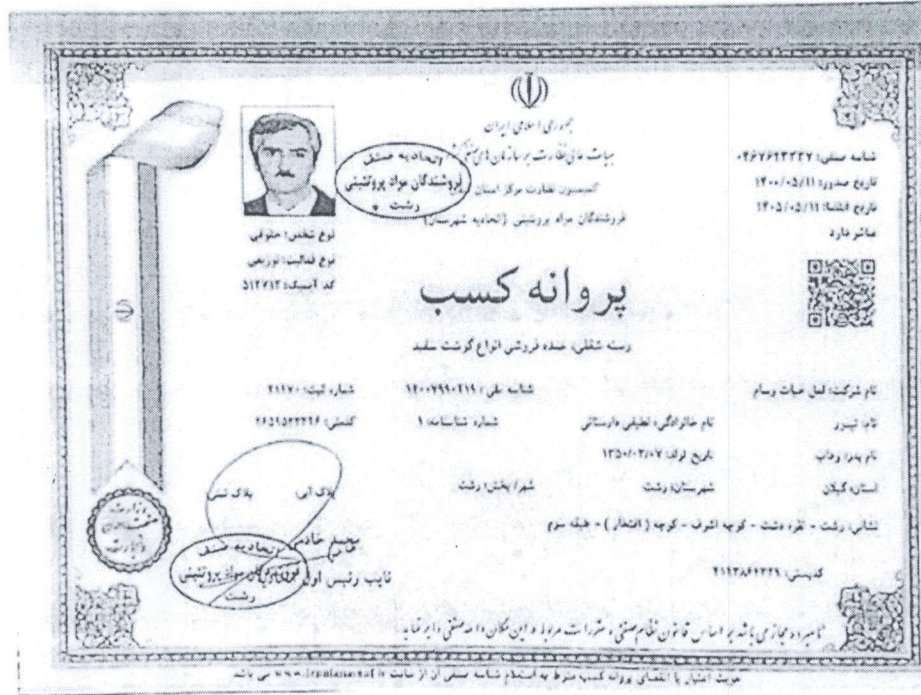 جمهوری اسلامی ایران
هیات عالی نظارت بر سازمان های صنفی کشور
کمیسیون نظارت مرکز استان
فروشندگان مواد پروتئینی (اتحادیه شهرستان)
شناسه صنفی: ۰۴۶۷۶۲۳۲۳۷
تاریخ صدور: ۱۴۰۰/۰۵/۱۱
تاریخ انقضا: ۱۴۰۵/۰۵/۱۱
مباشر دارد
اتحادیه صنف
فروشندگان مواد پروتئینی
رشت
نوع شخص: حقوقی
نوع فعالیت: توزیعی
کد آیسیک: ۵۱۲۷۱۲
پروانه کسب
رسته شغلی: عمده فروشی انواع گوشت سفید
نام شرکت: فصل حیات وسام شناسه ملی: ۱۴۰۰۷۹۹۰۲۱۹ شماره ثبت: ۲۱۱۷۰
نام: تیمور نام خانوادگی: لطیفی دارستانی شماره شناسنامه: ۱ کدملی: ۲۶۵۱۵۲۲۲۹۶
نام پدر: وهاب تاریخ تولد: ۱۳۵۰/۰۲/۰۷
استان: گیلان شهرستان: رشت شهر/ بخش: رشت پلاک آبی پلاک ثبتی
نشانی: رشت - نقره دشت - کوچه اشرف - کوچه (افتخار) - طبقه سوم
کدپستی: ۴۱۴۳۸۶۴۳۲۹
مجید خادمی
نایب رئیس اول
اتحادیه صنف
فروشندگان مواد پروتئینی
رشت
نامبرده مجاز می باشد بر اساس قانون نظام صنفی و مقررات مربوط در این مکان واحد صنفی دایر نماید.
هویت اعتبار یا انقضای پروانه کسب منوط به استعلام شناسه صنفی آن از سایت www.iranianasnaf.ir می باشد